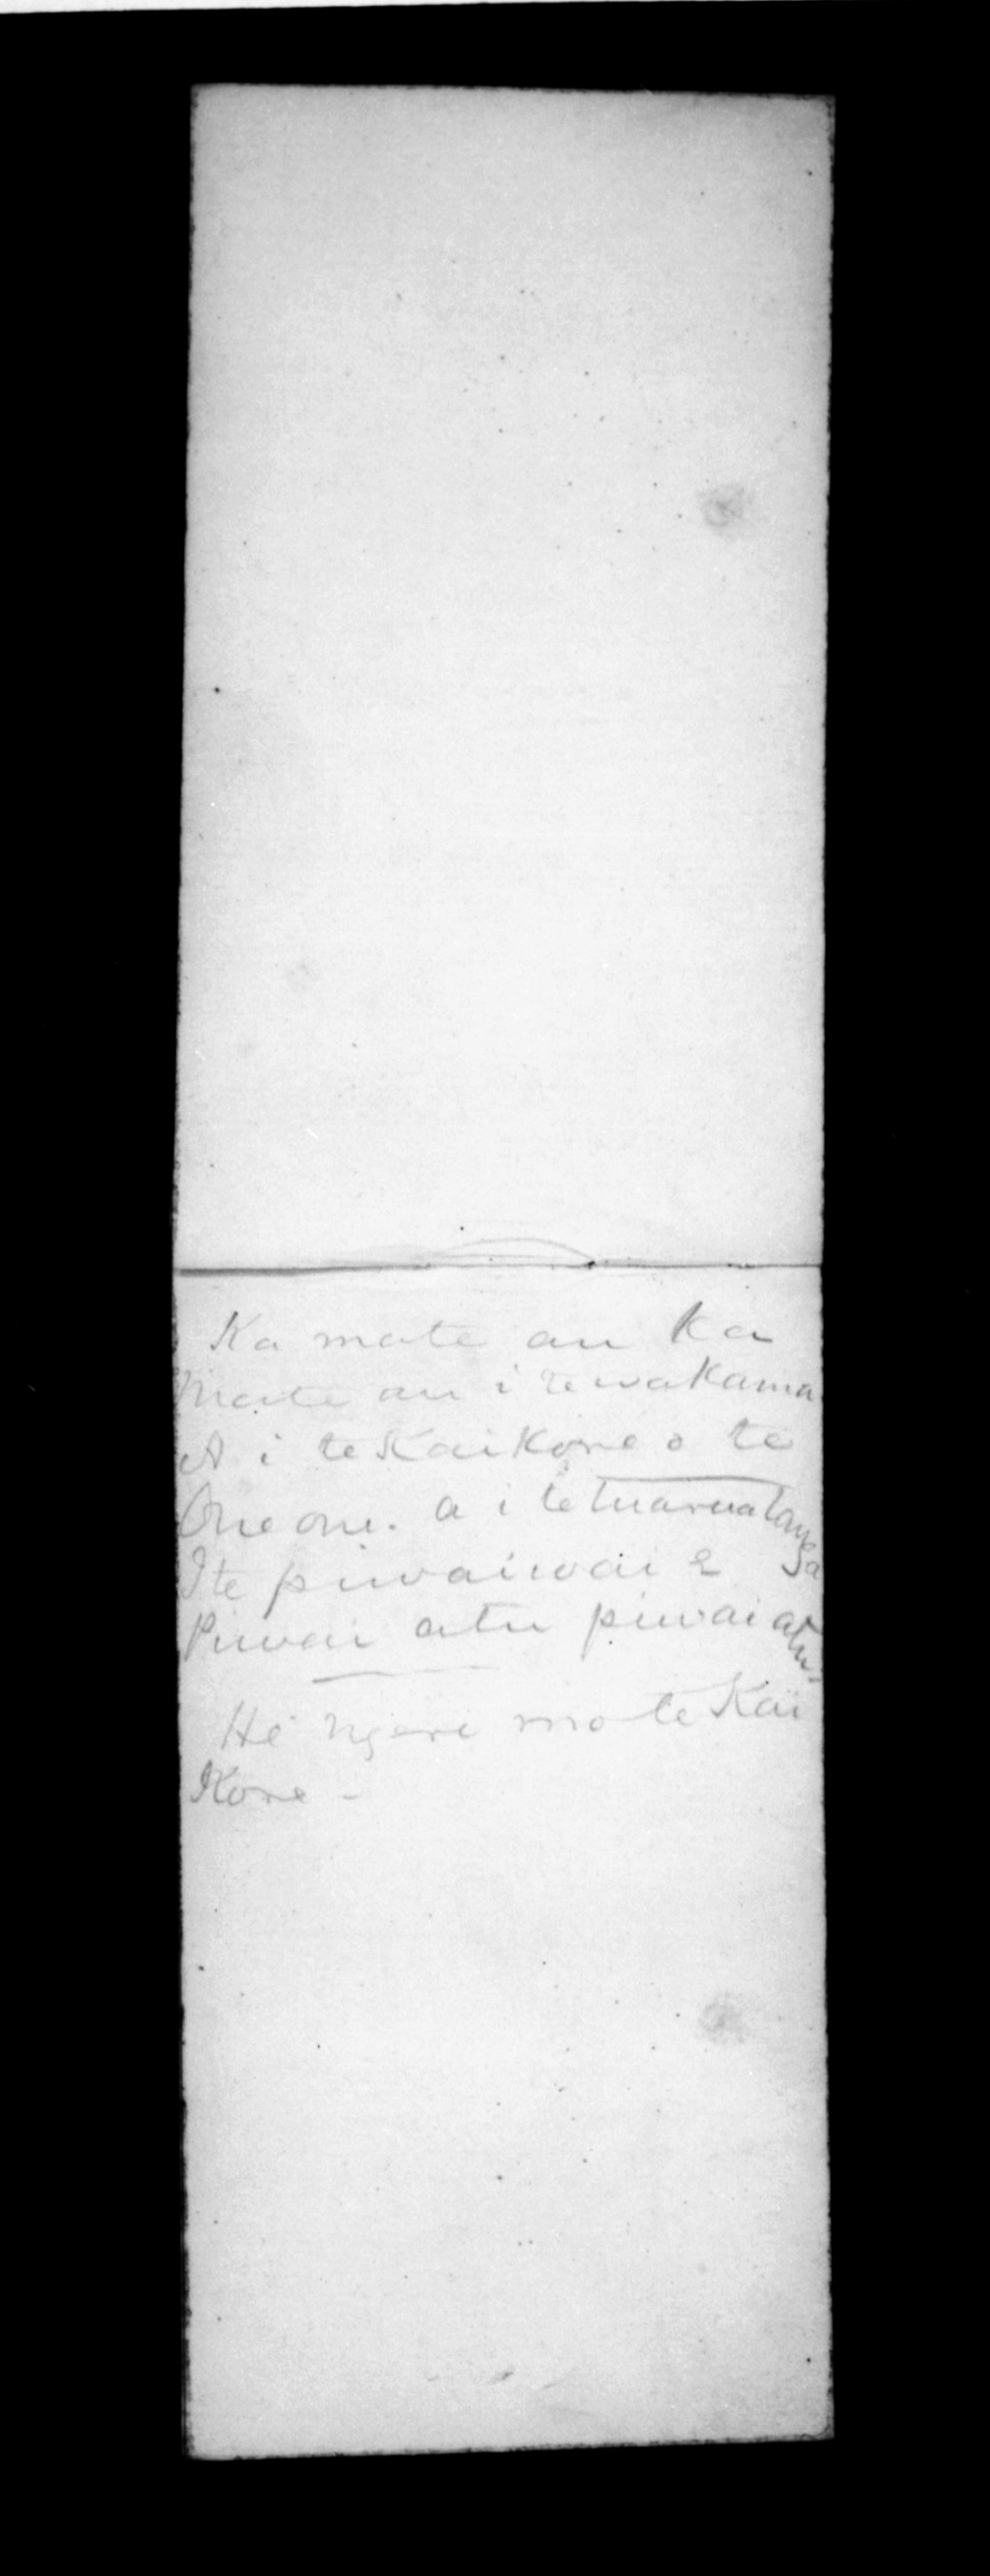 Ka mate au Ka
Mate au i te wakama
A i te Kaikore o te
Oneone. a i te tuaruatanga
I te piwaiwai e
Piwai atu piwai atu.
He ngeri mo te Kai
Kore -